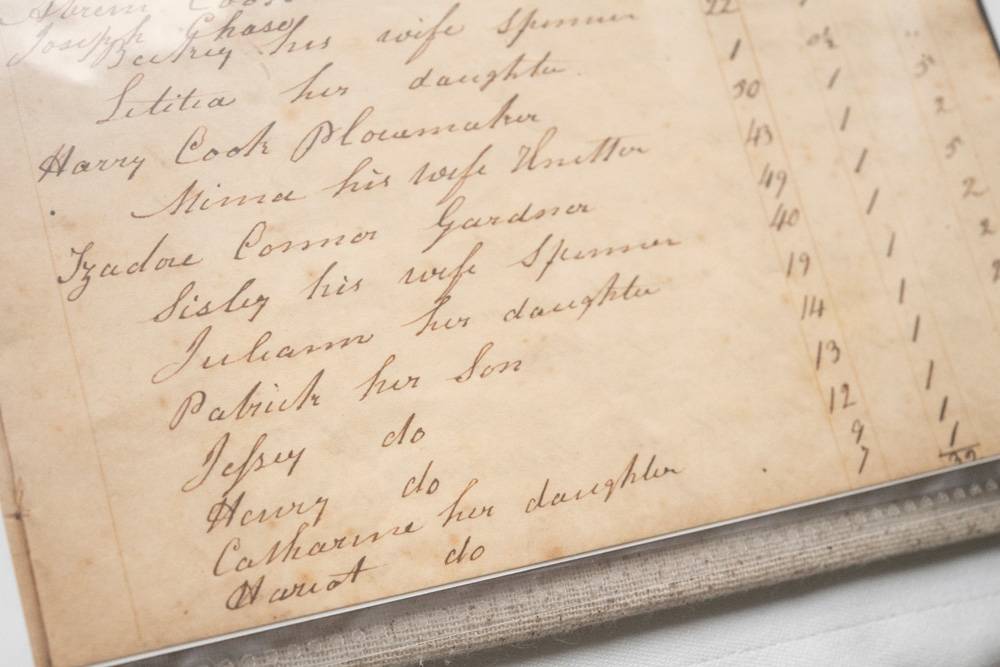 Abrem Coo
Joseph Chase
Beckey his wife Spinner 22
Letitia her daughter 1
Harry Cook Plowmaker 30 1 5
Mima his wife Knitter 43 1 2
Izadore Connor Gardner 49 1 5
Sisley his wife Spinner 40 1 2
Juliann her daughter 19 1 2
Patrick her Son 14 1
Jessey do 13 1
Henry do 12 1
Catharine her daughter 9 1
Hariot do 7 1